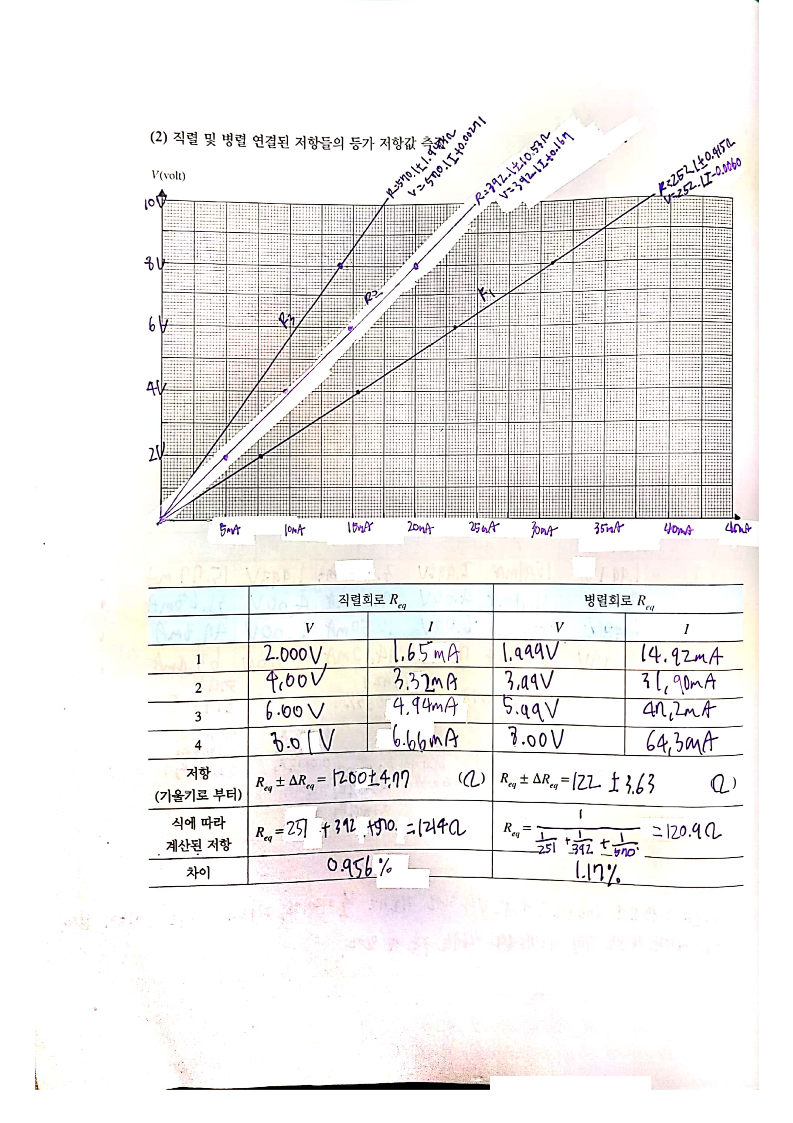 (2) 직렬 및 병렬 연결된 저항들의 등가 저항값 측정
V(volt)
R=570.1±1.947Ω
V=570.1I+0.00291
R=392.1±10.57Ω
V=392.1I+0.167
R=252.1±0.415Ω
V=252.1I-0.0060
10V
8V
6V
4V
2V
R3
R2
R1
5mA 10mA 15mA 20mA 25mA 30mA 35mA 40mA 45mA
직렬회로 Req 병렬회로 Req
V I V I
1 2.000V 1.65mA 1.999V 14.92mA
2 4.00V 3.32mA 3.99V 31.90mA
3 6.00V 4.94mA 5.99V 47.2mA
4 8.01V 6.66mA 8.00V 64.3mA
저항
(기울기로 부터)
Req ± ΔReq = 1200±4.77 (Ω) Req ± ΔReq = 122 ± 3.63 (Ω)
식에 따라
계산된 저항
Req = 251 + 392 + 570. = 1214Ω Req = 1/(1/251 + 1/392 + 1/570.) = 120.9Ω
차이 0.956% 1.17%